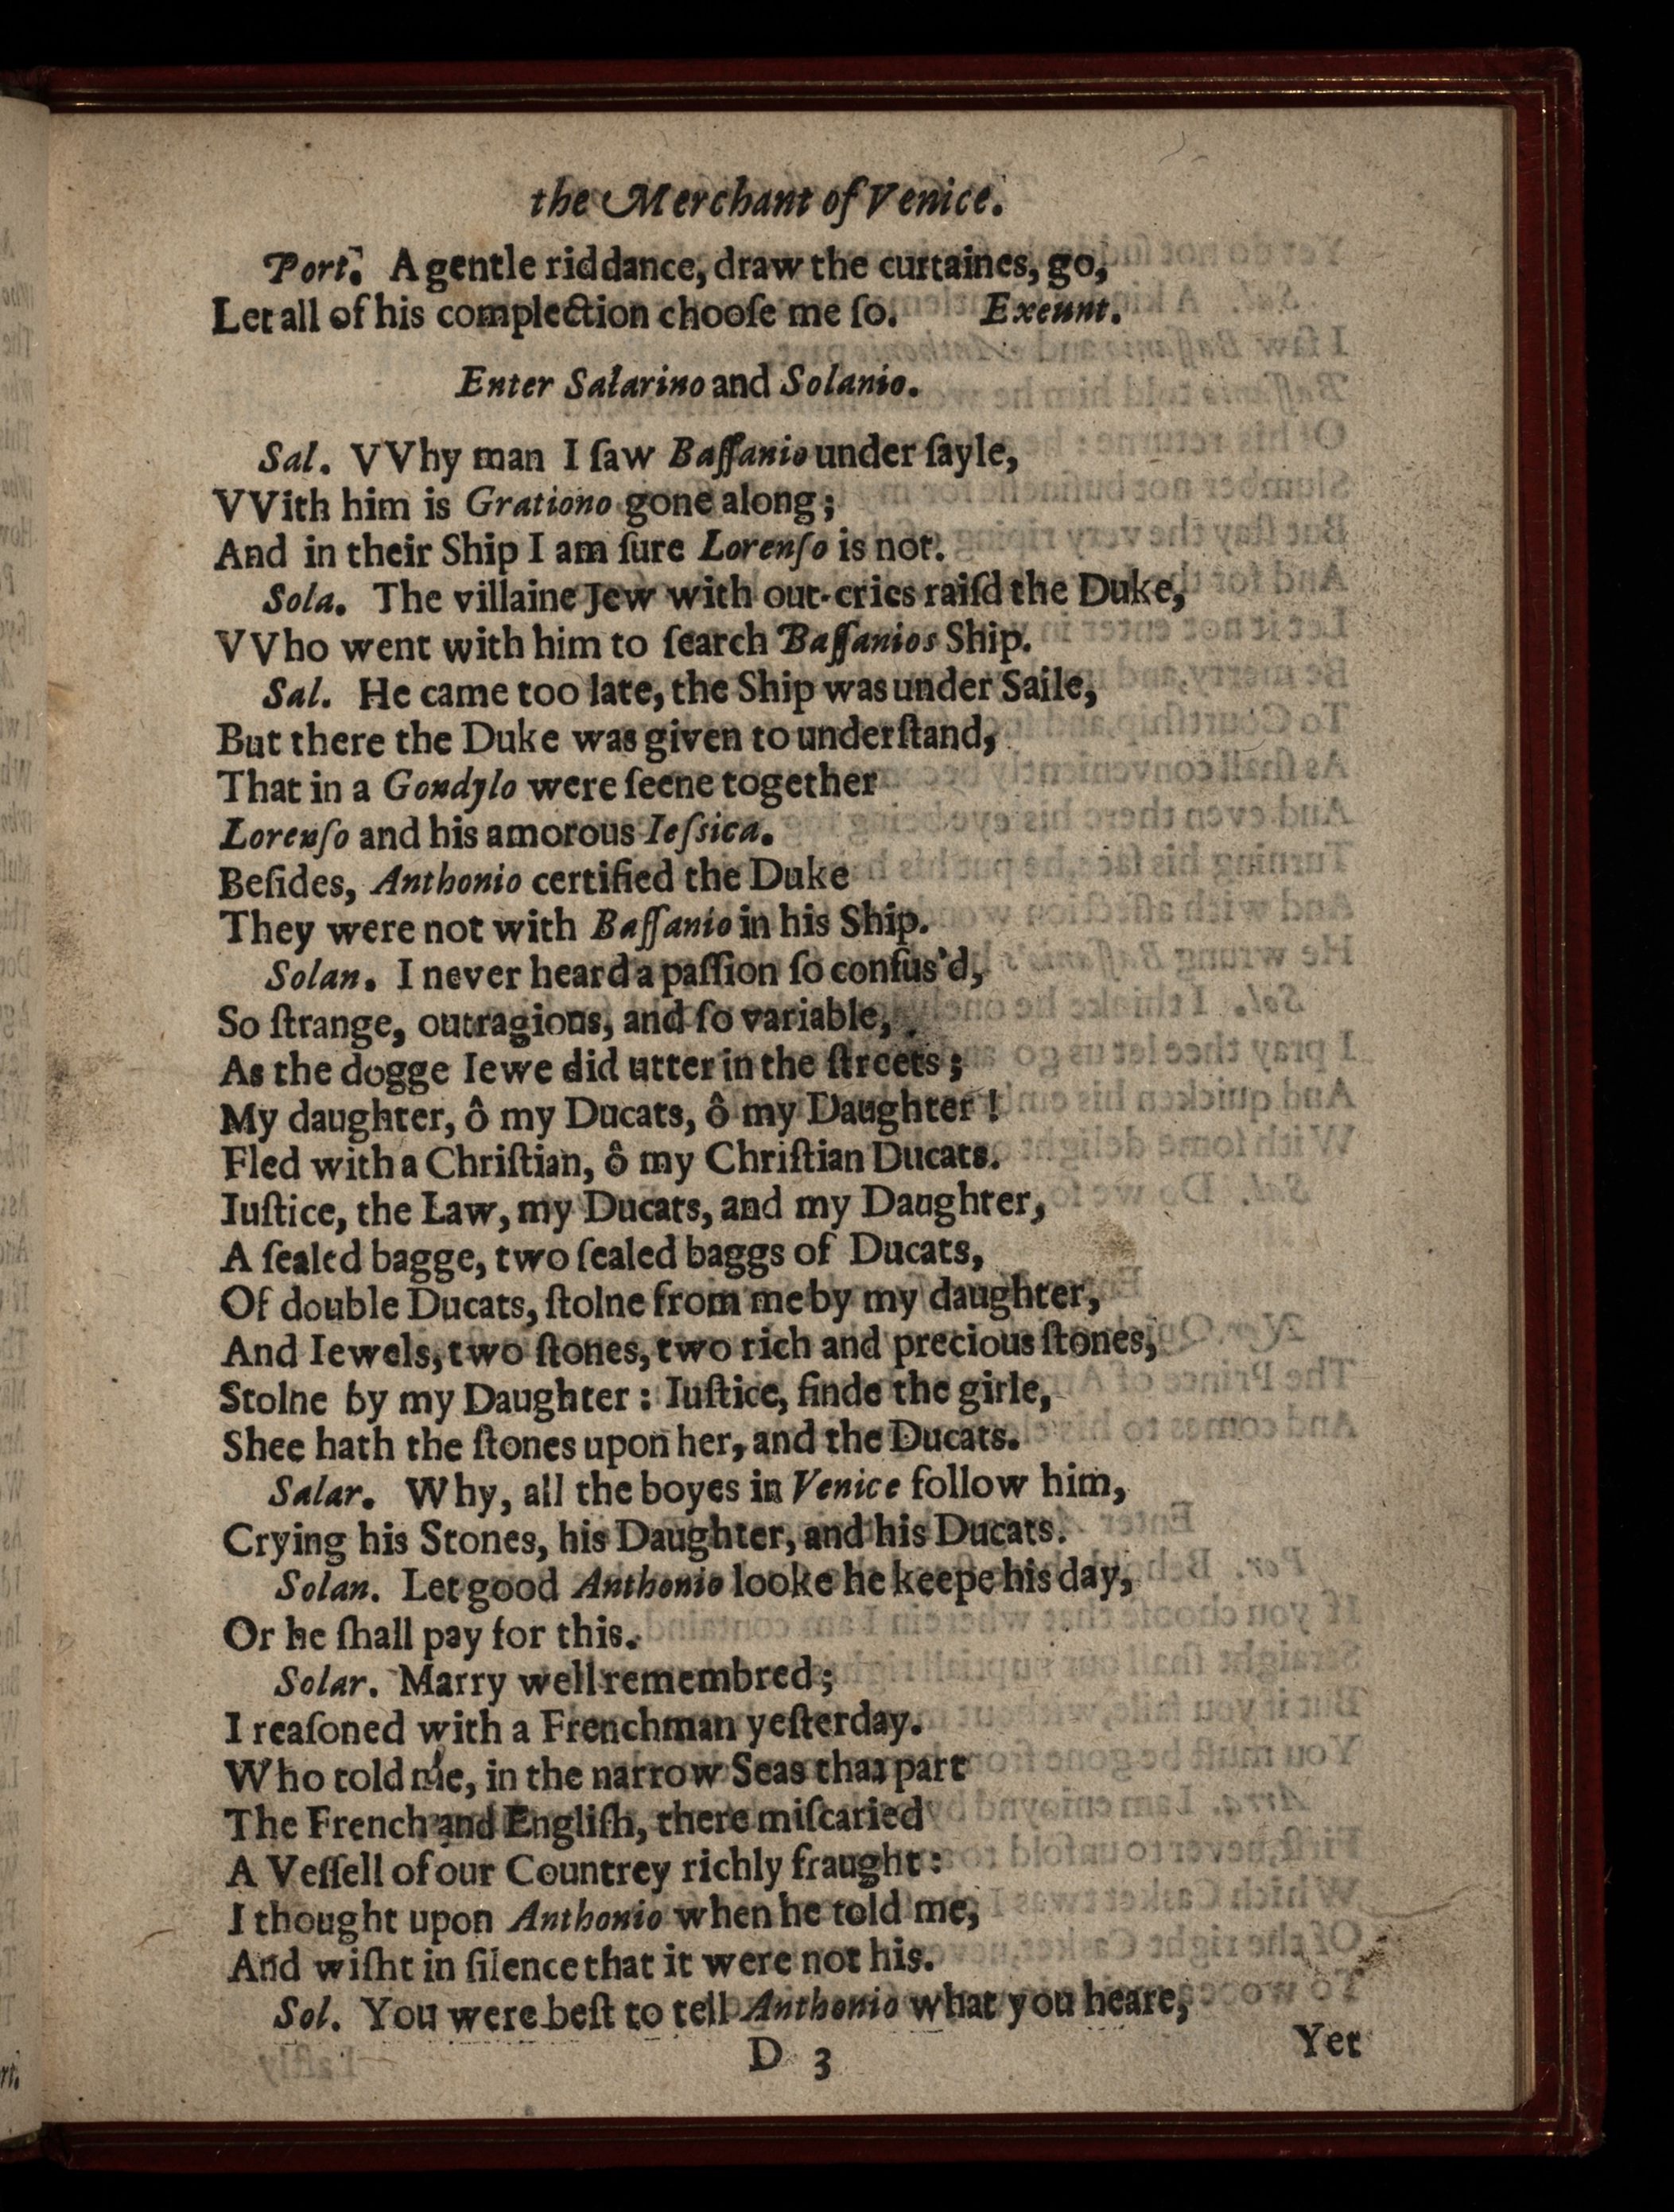 the Merchant of Venice.
Port. A gentle riddance, draw the curtaines, go,
Let all of his complection chooſe me ſo. Exeunt.
Enter Salarino and Solanio.
Sal. VVhy man I ſaw Baſſanio under ſayle,
VVith him is Grationo gone along;
And in their Ship I am ſure Lorenſo is not.
Sola. The villaine Jew with out-cries raiſd the Duke,
VVho went with him to ſearch Baſſanios Ship.
Sal. He came too late, the Ship was under Saile,
But there the Duke was given to underſtand,
That in a Gondylo were ſeene together
Lorenſo and his amorous Ieſsica.
Beſides, Anthonio certified the Duke
They were not with Baſſanio in his Ship.
Solan. I never heard a paſſion ſo confus'd,
So ſtrange, outragious, and ſo variable,
As the dogge Iewe did utter in the ſtreets;
My daughter, ô my Ducats, ô my Daughter!
Fled with a Chriſtian, ô my Chriſtian Ducats.
Iuſtice, the Law, my Ducats, and my Daughter,
A ſealed bagge, two ſealed baggs of Ducats,
Of double Ducats, ſtolne from me by my daughter,
And Iewels, two ſtones, two rich and precious ſtones,
Stolne by my Daughter: Iuſtice, finde the girle,
Shee hath the ſtones upon her, and the Ducats.
Salar. Why, all the boyes in Venice follow him,
Crying his Stones, his Daughter, and his Ducats.
Solan. Let good Anthonio looke he keepe his day,
Or he ſhall pay for this.
Solar. Marry well remembred;
I reaſoned with a Frenchman yeſterday.
Who told me, in the narrow Seas that part
The French and Engliſh, there miſcaried
A Veſſell of our Countrey richly fraught:
I thought upon Anthonio when he told me,
And wiſht in ſilence that it were not his.
Sol. You were beſt to tell Anthonio what you heare,
D 3 Yet